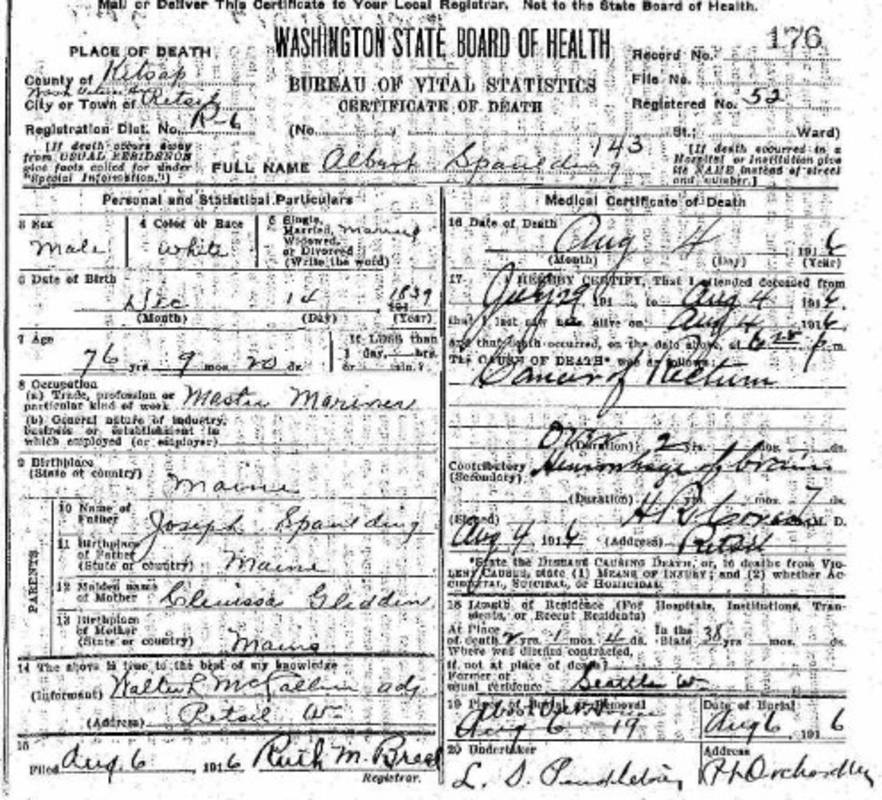 Mail or Deliver This Certificate to Your Local Registrar. Not to the State Board of Health.
PLACE OF DEATH
WASHINGTON STATE BOARD OF HEALTH
Record No. 176
County of Kitsap
BUREAU OF VITAL STATISTICS
File No.
City or Town of Retsil
CERTIFICATE OF DEATH
Registered No. 52
Registration Dist. No. R-6
(No. St.; Ward)
143
[If death occurs away from USUAL RESIDENCE give facts called for under "Special Information."]
FULL NAME Albert Spaulding
[If death occurred in a Hospital or Institution give its NAME instead of street and number.]
Personal and Statistical Particulars
3 Sex
Male
4 Color or Race
White
5 Single, Married, Widowed, or Divorced (Write the word)
Married
6 Date of Birth
Dec 14, 1839
(Month) (Day) (Year)
7 Age
76 yrs. 9 mos. 20 ds.
If LESS than
1 day, hrs.
or min.?
8 Occupation
(a) Trade, profession or
particular kind of work Master Mariner
(b) General nature of industry,
business or establishment in
which employed (or employer)
9 Birthplace
(State or country)
Maine
PARENTS
10 Name of
Father Joseph Spaulding
11 Birthplace
of Father
(State or country) Maine
12 Maiden name
of Mother Glidden
13 Birthplace
of Mother
(State or country) Maine
14 The above is true to the best of my knowledge
(Informant) adj
(Address) Retsil W
15
Filed Aug. 6 1916 Ruth M.
Registrar.
Medical Certificate of Death
16 Date of Death
Aug 4 1916
(Month) (Day) (Year)
17 I HEREBY CERTIFY, That I attended deceased from
July 29 191 to Aug 4 1916
that I last saw him alive on Aug 4 1916
and that death occurred, on the date above, at 6 p m.
The CAUSE OF DEATH* was as follows:
Cancer of Rectum
Over
(Duration) 2 yrs. mos. ds.
Contributory Hemorrhage of
(Secondary)
(Duration) yrs. mos. 7 ds.
(Signed) M. D.
Aug 4, 1916 (Address) Retsil
*State the DISEASE CAUSING DEATH, or, in deaths from VIOLENT CAUSES, state (1) MEANS OF INJURY; and (2) whether ACCIDENTAL, SUICIDAL, or HOMICIDAL.
18 Length of Residence (For Hospitals, Institutions, Transients, or Recent Residents)
At Place
of death 2 yrs. 1 mos. 4 ds. In the State 38 yrs. mos. ds.
Where was disease contracted,
if not at place of death?
Former or
usual residence Seattle W
19 Place of Burial or Removal
Aug 6 19
Date of Burial
Aug 6, 1916
20 Undertaker
L. S. Pendleton
Address
Pt Orchard